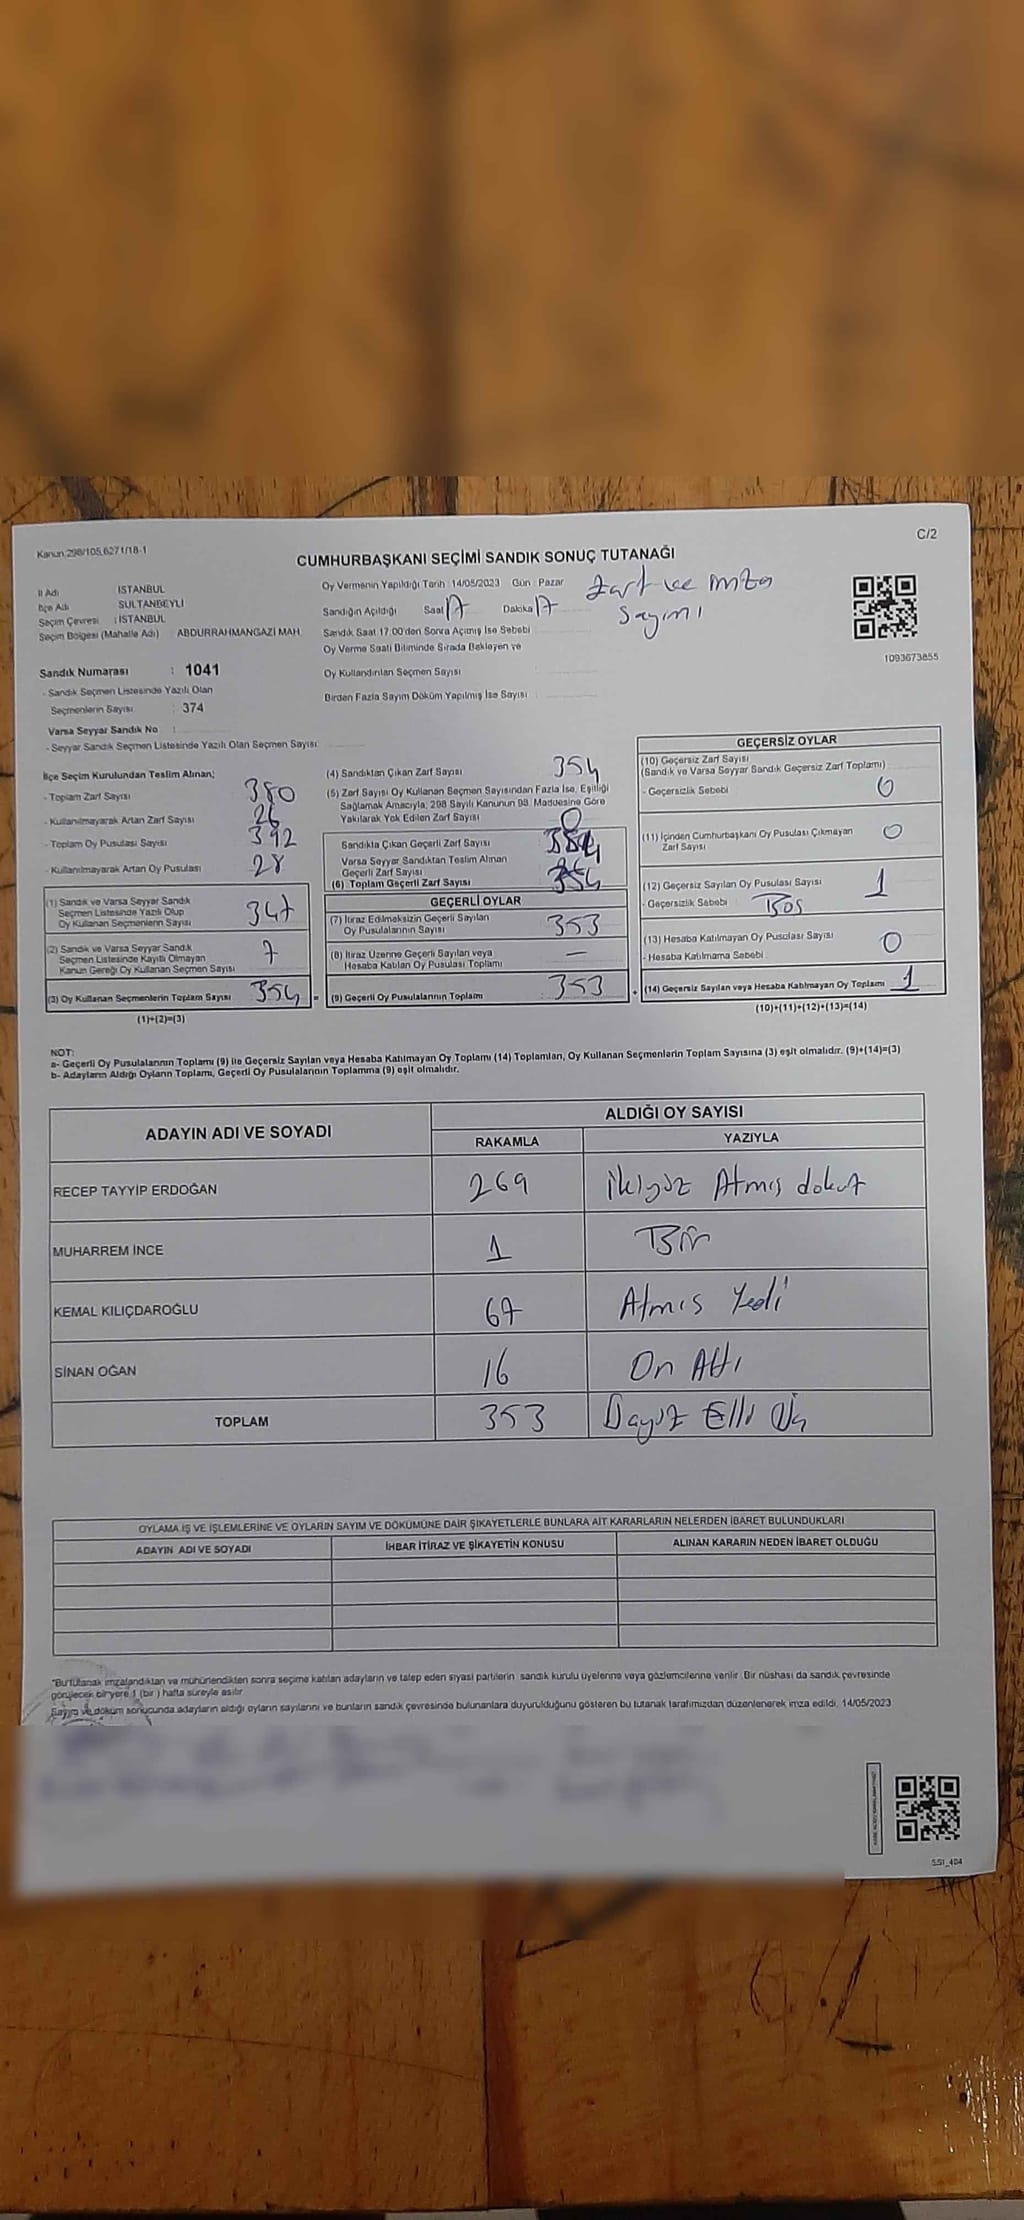 Kanun:298/105,6271/18-1
C/2
CUMHURBAŞKANI SEÇİMİ SANDIK SONUÇ TUTANAĞI
İl Adı : İSTANBUL
İlçe Adı : SULTANBEYLİ
Seçim Çevresi : İSTANBUL
Seçim Bölgesi (Mahalle Adı) : ABDURRAHMANGAZİ MAH.
Oy Vermenin Yapıldığı Tarih : 14/05/2023 Gün : Pazar
Sandığın Açıldığı Saat 17 Dakika 17
Zarf ve imza
Sayımı
Sandık Saat 17:00'den Sonra Açılmış İse Sebebi
Oy Verme Saati Bitiminde Sırada Bekleyen ve
Oy Kullandırılan Seçmen Sayısı
Birden Fazla Sayım Döküm Yapılmış İse Sayısı
1093673855
Sandık Numarası : 1041
- Sandık Seçmen Listesinde Yazılı Olan
Seçmenlerin Sayısı : 374
Varsa Seyyar Sandık No :
- Seyyar Sandık Seçmen Listesinde Yazılı Olan Seçmen Sayısı:
İlçe Seçim Kurulundan Teslim Alınan;
- Toplam Zarf Sayısı 380
- Kullanılmayarak Artan Zarf Sayısı 26
- Toplam Oy Pusulası Sayısı 392
- Kullanılmayarak Artan Oy Pusulası 28
(1) Sandık ve Varsa Seyyar Sandık
Seçmen Listesinde Yazılı Olup
Oy Kullanan Seçmenlerin Sayısı 347
(2) Sandık ve Varsa Seyyar Sandık
Seçmen Listesinde Kayıtlı Olmayan
Kanun Gereği Oy Kullanan Seçmen Sayısı 7
(3) Oy Kullanan Seçmenlerin Toplam Sayısı 354 =
(1)+(2)=(3)
(4) Sandıktan Çıkan Zarf Sayısı 354
(5) Zarf Sayısı Oy Kullanan Seçmen Sayısından Fazla İse, Eşitliği
Sağlamak Amacıyla, 298 Sayılı Kanunun 98. Maddesine Göre
Yakılarak Yok Edilen Zarf Sayısı 0
Sandıkta Çıkan Geçerli Zarf Sayısı 354
Varsa Seyyar Sandıktan Teslim Alınan
Geçerli Zarf Sayısı
(6) Toplam Geçerli Zarf Sayısı 354
GEÇERLİ OYLAR
(7) İtiraz Edilmeksizin Geçerli Sayılan
Oy Pusulalarının Sayısı 353
(8) İtiraz Üzerine Geçerli Sayılan veya
Hesaba Katılan Oy Pusulası Toplamı —
(9) Geçerli Oy Pusulalarının Toplamı 353 +
GEÇERSİZ OYLAR
(10) Geçersiz Zarf Sayısı
(Sandık ve Varsa Seyyar Sandık Geçersiz Zarf Toplamı)
- Geçersizlik Sebebi 0
(11) İçinden Cumhurbaşkanı Oy Pusulası Çıkmayan
Zarf Sayısı 0
(12) Geçersiz Sayılan Oy Pusulası Sayısı 1
- Geçersizlik Sebebi Boş
(13) Hesaba Katılmayan Oy Pusulası Sayısı 0
- Hesaba Katılmama Sebebi
(14) Geçersiz Sayılan veya Hesaba Katılmayan Oy Toplamı 1
(10)+(11)+(12)+(13)=(14)
NOT:
a- Geçerli Oy Pusulalarının Toplamı (9) ile Geçersiz Sayılan veya Hesaba Katılmayan Oy Toplamı (14) Toplamları, Oy Kullanan Seçmenlerin Toplam Sayısına (3) eşit olmalıdır. (9)+(14)=(3)
b- Adayların Aldığı Oyların Toplamı, Geçerli Oy Pusulalarının Toplamına (9) eşit olmalıdır.
ADAYIN ADI VE SOYADI
ALDIĞI OY SAYISI
RAKAMLA YAZIYLA
RECEP TAYYİP ERDOĞAN 269 ikiyüz Atmış dokuz
MUHARREM İNCE 1 Bir
KEMAL KILIÇDAROĞLU 67 Atmış Yedi
SİNAN OĞAN 16 On Altı
TOPLAM 353 Üçyüz Elli Üç
OYLAMA İŞ VE İŞLEMLERİNE VE OYLARIN SAYIM VE DÖKÜMÜNE DAİR ŞİKAYETLERLE BUNLARA AİT KARARLARIN NELERDEN İBARET BULUNDUKLARI
ADAYIN ADI VE SOYADI İHBAR İTİRAZ VE ŞİKAYETİN KONUSU ALINAN KARARIN NEDEN İBARET OLDUĞU
"Bu tutanak imzalandıktan ve mühürlendikten sonra seçime katılan adayların ve talep eden siyasi partilerin sandık kurulu üyelerine veya gözlemcilerine verilir. Bir nüshası da sandık çevresinde
görülecek bir yere 1 (bir) hafta süreyle asılır.
Sayım ve döküm sonucunda adayların aldığı oyların sayılarını ve bunların sandık çevresinde bulunanlara duyurulduğunu gösteren bu tutanak tarafımızdan düzenlenerek imza edildi. 14/05/2023
SS1_404